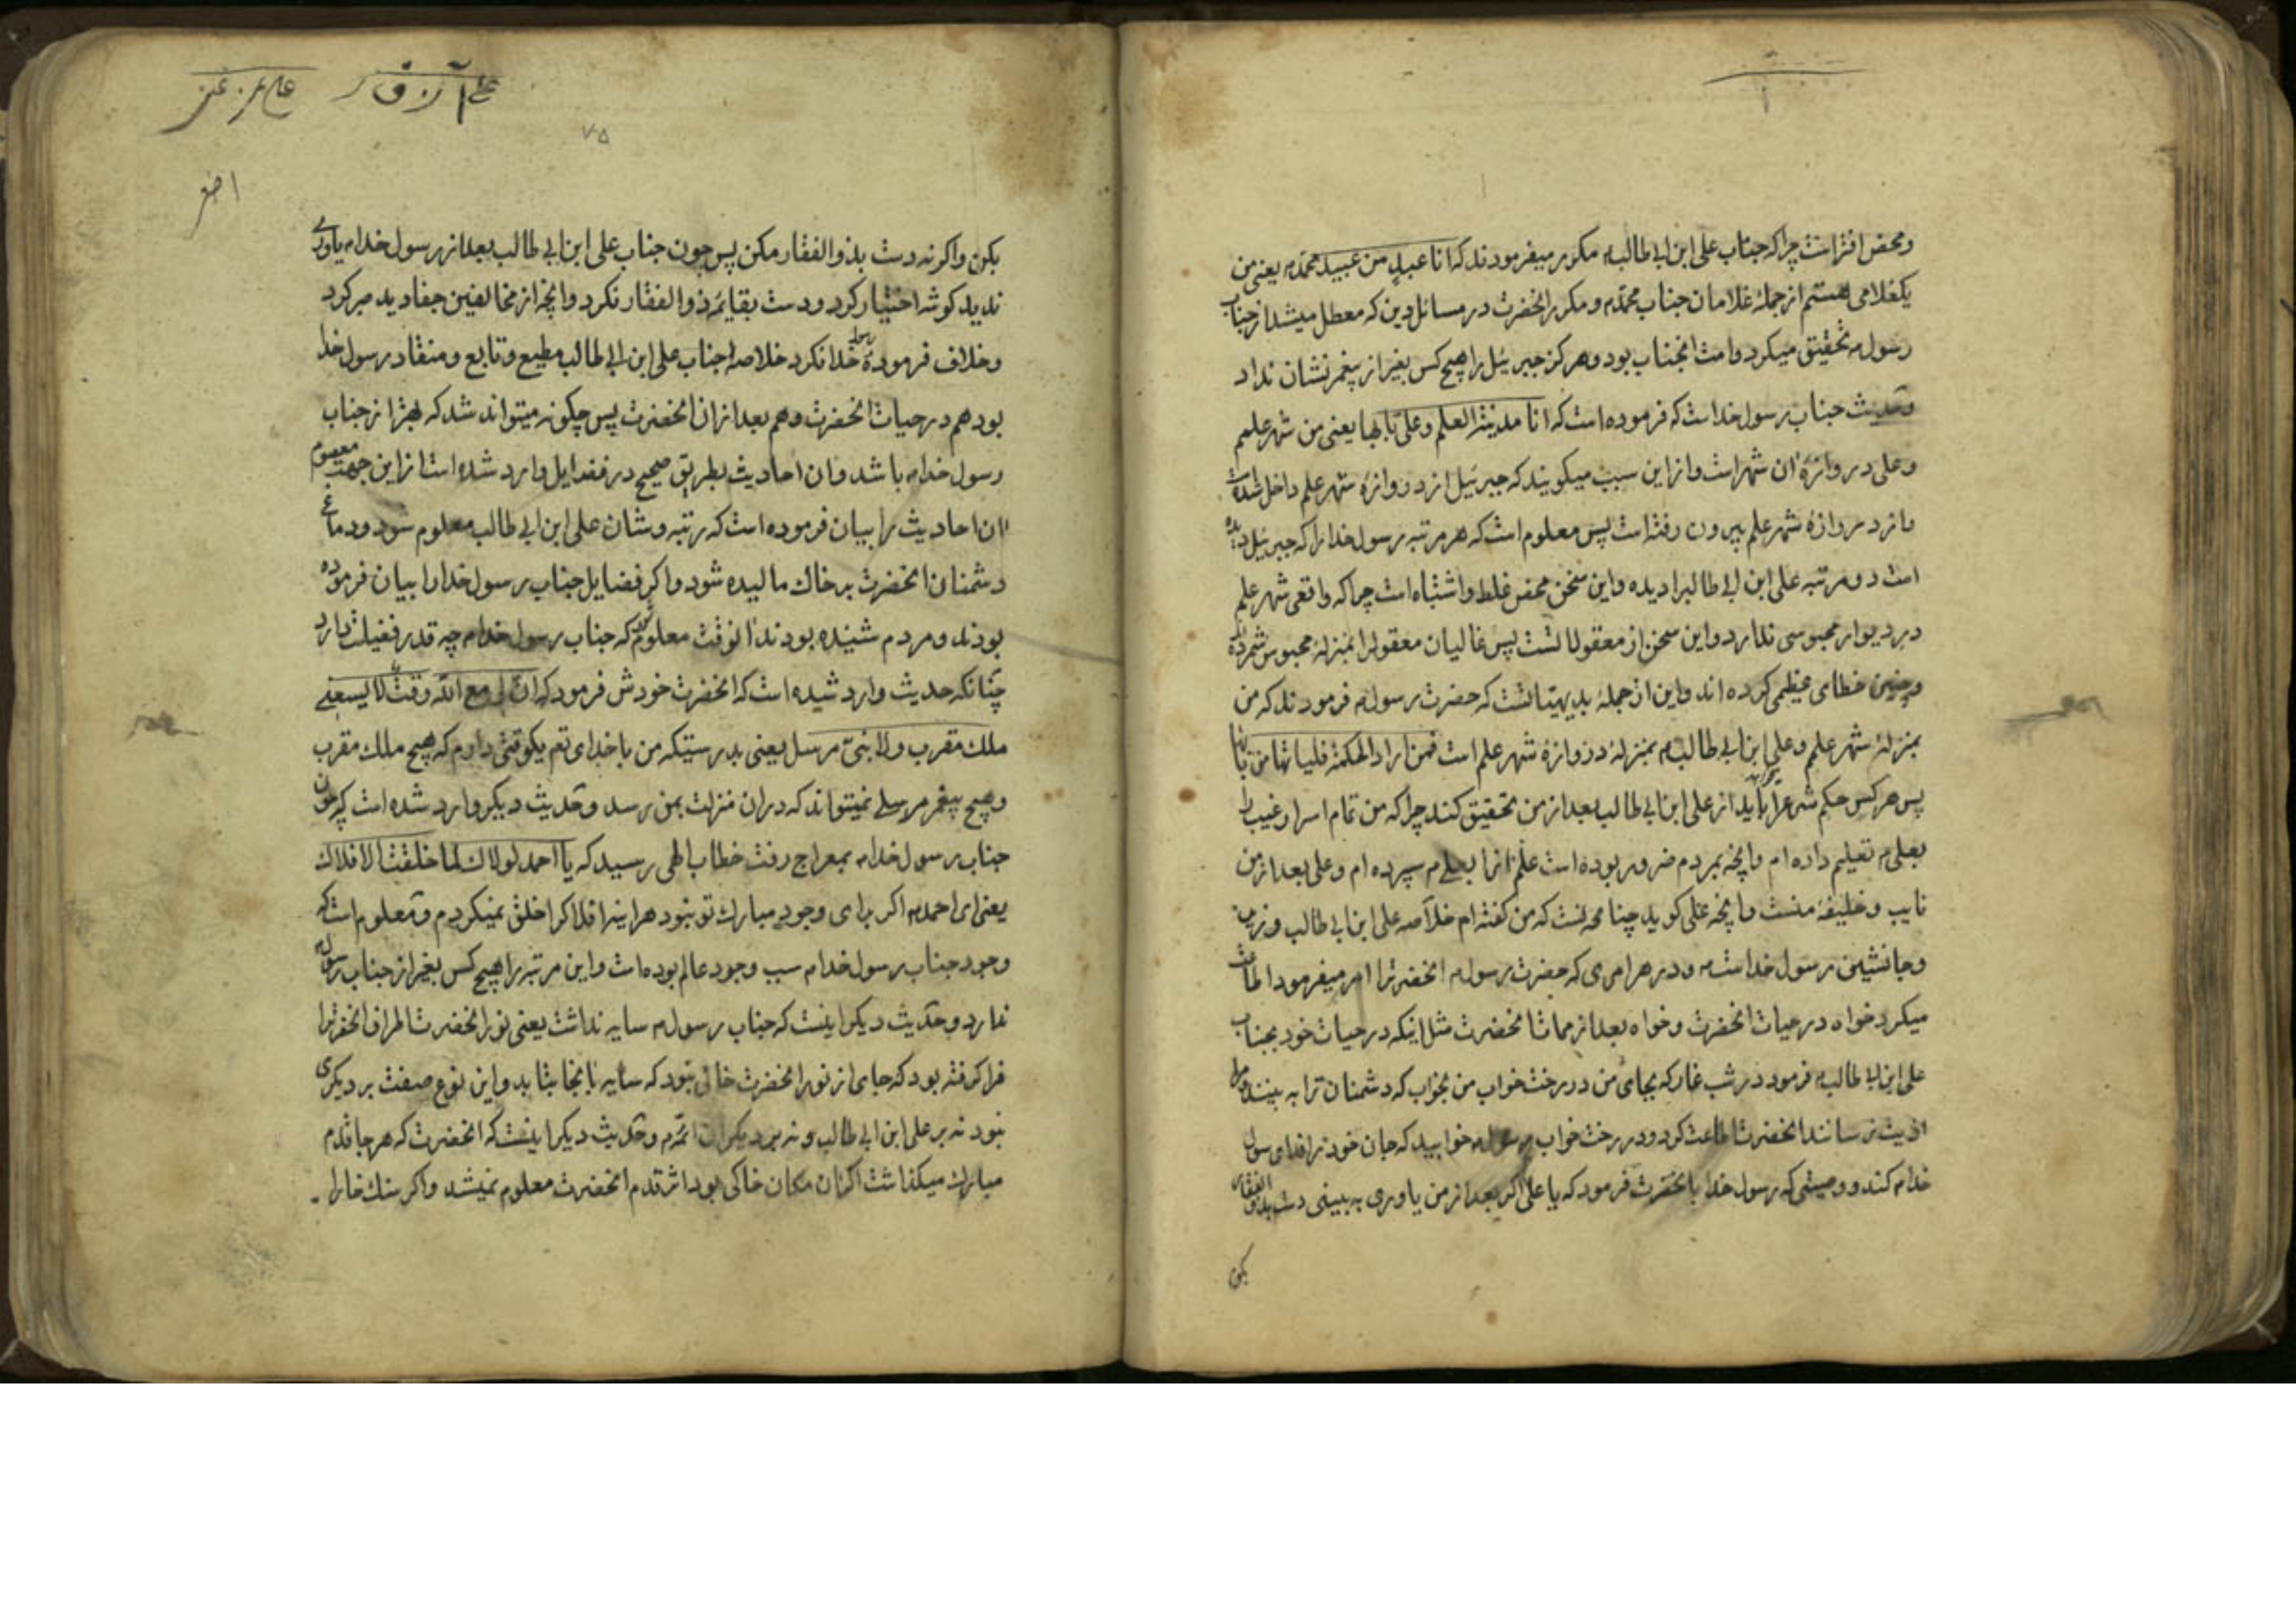 ومحض افتراست چرا که جناب علی ابن ابی طالب۴ مکرر میفرمودند که انا عبد من عبید محمد۴ یعنی من
یکغلامی هستم از جملهٔ غلامان جناب محمد۴ و مکرر انحضرت در مسائل دین که معطل میشد از جناب
رسول۴ تحقیق میکرد و امت انجناب بود و هرکز جبرئیل را هیچ کس بغیر از پیغمبر نشان نداد
وحدیث جناب رسول خداست که فرموده است که انا مدینة العلم وعلی بابها یعنی من شهر علمم
وعلی دروازهٔ ان شهر است و از این سبب میکویند که جبرئیل از دروازهٔ شهر علم داخل شده است
و از دروازهٔ شهر علم بیرون رفته است پس معلوم است که هر مرتبه رسول خدا را که جبرئیل دیده
است دو مرتبه علی ابن ابی طالبرا دیده و این سخن محض غلط و اشتباه است چرا که واقعی شهر علم
در دیوار محبوسی ندارد و این سخن از معقولاتست پس غالیان معقولرا بمنزلهٔ محبوس شمرده
وچنین خطای عظیمی کرده اند و این از جملهٔ بدیهیتاتست که حضرت رسول۴ فرمودند که من
بمنزلهٔ شهر علم و علی ابن ابی طالب۴ بمنزلهٔ دروازهٔ شهر علم است فمن اراد الحکمة فلیاتها من بابها
پس هر کس حکم شرعرا باید از علی ابن ابی طالب بعد از من تحقیق کند چرا که من تمام اسرار غیب را
بعلی۴ تعلیم داده ام و انچه بمردم ضرور بوده است علم انرا بعلی۴ سپرده ام و علی بعد از من
نایب و خلیفهٔ منست و انچه علی کوید چنانچه انست که من کفته ام خلاصه علی ابن ابی طالب وزیر
وجانشین رسول خداست۴ و در هر امری که حضرت رسول۴ انحضرترا امر میفرمود اطاعت
میکرد خواه در حیات انحضرت و خواه بعد از ممات انحضرت مثل اینکه در حیات خود بجناب
علی ابن ابی طالب۴ فرمود در شب غار که بجای من در رخت خواب من بخواب که دشمنان ترا به بینند و مرا
اذیت نرسانند انحضرت اطاعت کرد و در رخت خواب رسول۴ خوابید که جان خود را فدای رسول
خدا۴ کند و وصیتی که رسول خدا بانحضرت فرمود که یا علی اکر بعد از من یاوری به بینی دست بذوالفقار
بکن
۷۵
بکن و اکر نه دست بذوالفقار مکن پس چون جناب علی ابن ابی طالب بعد از رسول خدا۴ یاوری
ندید کوشه اختیار کرد و دست بقایمهٔ ذوالفقار نکرد و انچه از مخالفین جفا دید صبر کرد
وخلاف فرمودهٔ رسول خدا نکرد خلاصه جناب علی ابن ابی طالب مطیع و تابع و منقاد رسول خدا
بود هم در حیات انحضرت و هم بعد از ان انحضرت پس چکونه میتواند شد که بهتر از جناب
رسول خدا۴ باشد و ان احادیث بطریق صحیح در فضایل وارد شده است از این جهت معصوم
ان احادیث را بیان فرموده است که رتبه و شان علی ابن ابی طالب معلوم شود و دماغ
دشمنان انحضرت بر خاک مالیده شود و اکر فضایل جناب رسول خدا را بیان فرموده
بودند و مردم شنیده بودند انوقت معلوم که جناب رسول خدا۴ چه قدر فضیلت دارد
چنانکه حدیث وارد شده است که انحضرت خودش فرمود که ان لی مع الله وقت لا یسعنی
ملک مقرب ولا نبی مرسل یعنی بدرستیکه من با خدای تعم یکوقتی دارم که هیچ ملک مقرب
وهیچ پیغمبر مرسلی نمیتواند که در ان منزلت بمن رسد وحدیث دیکر وارد شده است که چون
جناب رسول خدا۴ بمعراج رفت خطاب الهی رسید که یا احمد لولاک لما خلقت الافلاک
یعنی ای احمد۴ اکر برای وجود مبارک تو نبود هراینه افلاکرا خلق نمیکردم و معلوم است که
وجود جناب رسول خدا۴ سبب وجود عالم بوده است و این مرتبه را هیچ کس بغیر از جناب رسول۴
ندارد وحدیث دیکر اینست که جناب رسول۴ سایه نداشت یعنی نور انحضرت اطراف انحضرترا
فرا کرفته بود که جای از نور انحضرت خالی نبود که سایه بانجا بتابد و این نوع صفت بر دیکری
نبود نه بر علی ابن ابی طالب و نه بر دیکران ائمه۴ وحدیث دیکر اینست که انحضرت که هر جا قدم
مبارک میکذاشت اکر ان مکان خاکی بود اثر قدم انحضرت معلوم نمیشد و اکر سنک خارا